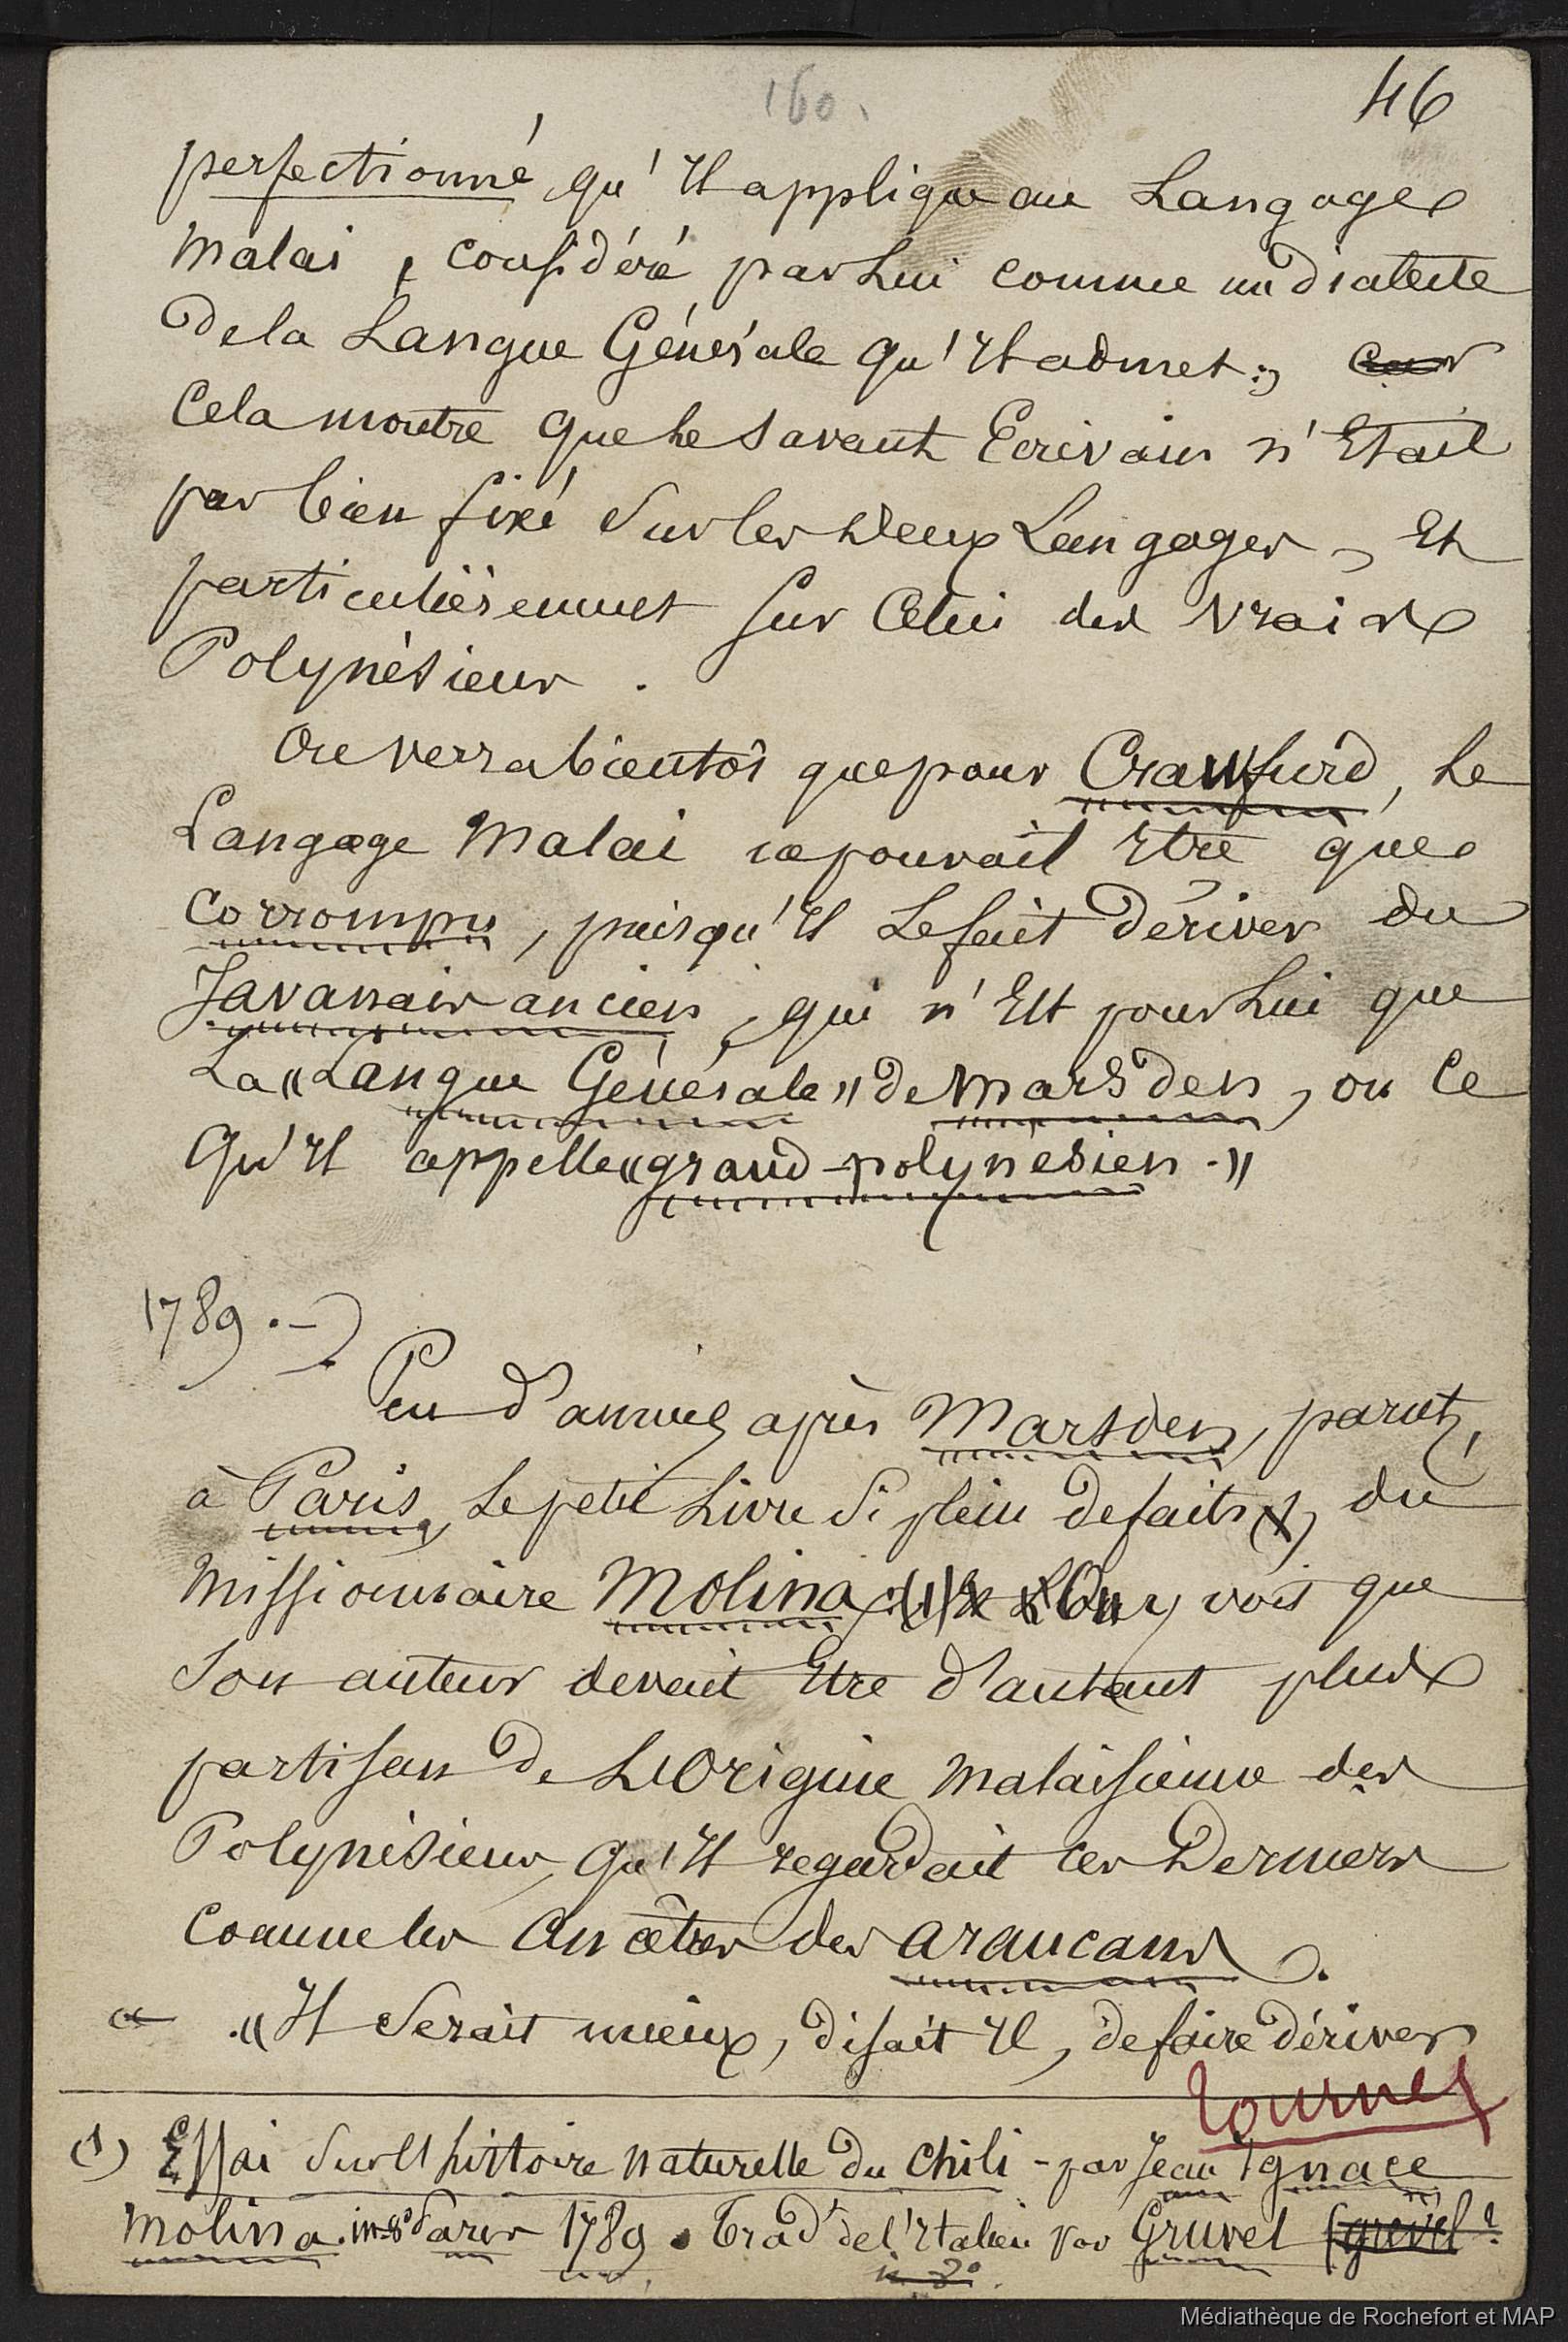 160.
46
perfectionné qu'Il applique au Langage
Malai, considéré par Lui comme un dialecte
de la Langue Générale qu'Il admet ; car
Cela montre que le savant Ecrivain n'Etait
pas bien fixé sur les deux Langages, Et
particulièrement sur Celui des vrais
Polynésiens.
On verra bientôt que pour Crawfurd, le
Langage Malai ne pouvait Etre que
corrompu, puisqu'Il Le fait dériver du
Javanais ancien, qui n'Est pour Lui que
La « Langue Générale » de Marsden, ou ce
Qu'Il appelle « grand-polynésien. »
1789.-
Peu d'années après Marsden, parut,
à Paris, Le petit Livre si plein de faits (1) du
Missionnaire Molina. On y voit que
Son auteur devait Etre d'autant plus
partisan de L'Origine Malaisienne des
Polynésiens, Qu'Il regardait ces Derniers
Comme les Ancêtres des Araucans.
« Il Serait mieux, disait Il, de faire dériver
Tournez
(1) Essai sur l'histoire Naturelle du Chili - par Jean Ignace
Molina. in-8° Paris 1789. Trad. de l'Italien par Gruvel (grevel ?
in-8°.
Médiathèque de Rochefort et MAP